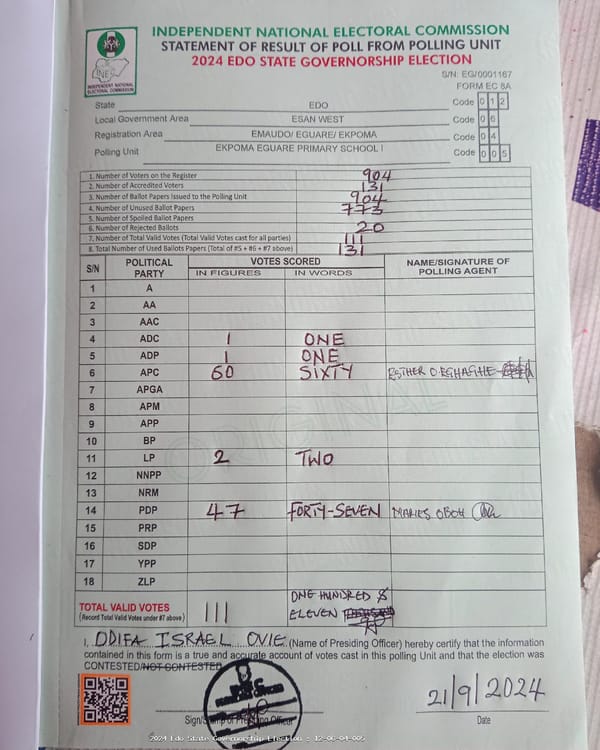 INDEPENDENT NATIONAL ELECTORAL COMMISSION
STATEMENT OF RESULT OF POLL FROM POLLING UNIT
2024 EDO STATE GOVERNORSHIP ELECTION
INEC
INDEPENDENT NATIONAL ELECTORAL COMMISSION
S/N: EG/0001167
FORM EC 8A
State EDO Code 0 1 2
Local Government Area ESAN WEST Code 0 6
Registration Area EMAUDO/ EGUARE/ EKPOMA Code 0 4
Polling Unit EKPOMA EGUARE PRIMARY SCHOOL I Code 0 0 5
1. Number of Voters on the Register 904
2. Number of Accredited Voters 131
3. Number of Ballot Papers Issued to the Polling Unit 904
4. Number of Unused Ballot Papers 773
5. Number of Spoiled Ballot Papers
6. Number of Rejected Ballots 20
7. Number of Total Valid Votes (Total Valid Votes cast for all parties) 111
8. Total Number of Used Ballots Papers (Total of #5 + #6 + #7 above) 131
S/N POLITICAL PARTY VOTES SCORED NAME/SIGNATURE OF POLLING AGENT
IN FIGURES IN WORDS
1 A
2 AA
3 AAC
4 ADC 1 ONE
5 ADP 1 ONE
6 APC 60 SIXTY ESTHER
7 APGA
8 APM
9 APP
10 BP
11 LP 2 TWO
12 NNPP
13 NRM
14 PDP 47 FORTY-SEVEN OBOH
15 PRP
16 SDP
17 YPP
18 ZLP
ORIGINAL
TOTAL VALID VOTES 111 ONE HUNDRED &
(Record Total Valid Votes under #7 above) ELEVEN
I, ODIFA ISRAEL OVIE (Name of Presiding Officer) hereby certify that the information
contained in this form is a true and accurate account of votes cast in this polling Unit and that the election was
CONTESTED/NOT CONTESTED
21/9/2024
Sign/Stamp of Presiding Officer Date
2024 Edo State Governorship Election : 12-06-04-005